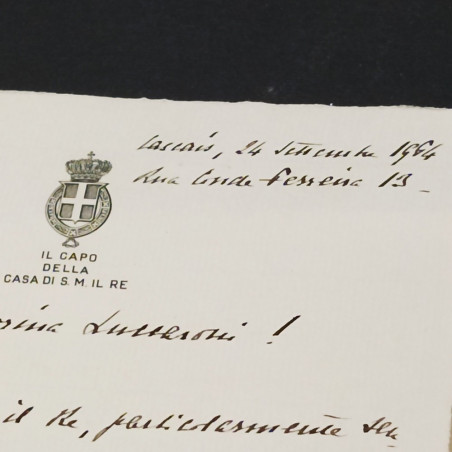 Cascais, 24 settembre 1964
Rua Conde Ferreira 13
IL CAPO
DELLA
CASA DI S. M. IL RE
!
il Re, particolarmente